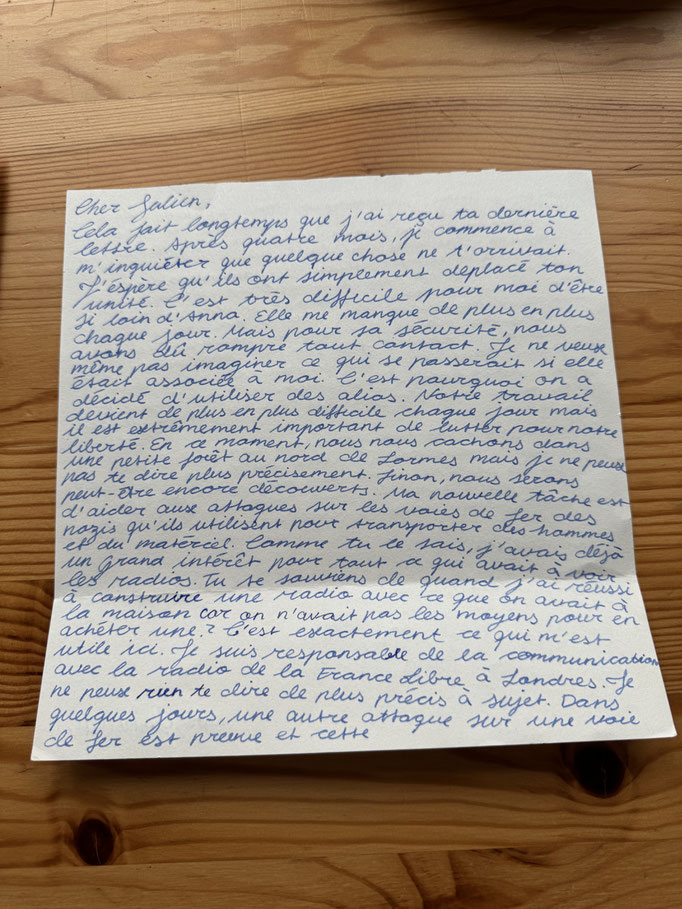 Cher Julien,
Cela fait longtemps que j'ai reçu ta dernière
lettre. Après quatre mois, je commence à
m'inquiéter que quelque chose ne t'arrivait.
J'éspère qu'ils ont simplement deplacé ton
unité. C'est très difficile pour moi d'être
si loin d'Anna. Elle me manque de plus en plus
chaque jour. Mais pour sa sécurité, nous
avons dû rompre tout contact. Je ne veux
même pas imaginer ce qui se passerait si elle
était associée à moi. C'est pourquoi on a
décidé d'utiliser des alias. Notre travail
devient de plus en plus difficile chaque jour mais
il est extrêmement important de lutter pour notre
liberté. En ce moment, nous nous cachons dans
une petite forêt au nord de Lormes mais je ne peux
pas te dire plus précisement. Sinon, nous serons
peut-être encore découverts. Ma nouvelle tâche est
d'aider aux attaques sur les voies de fer des
nazis qu'ils utilisent pour transporter des hommes
et du matériel. Comme tu le sais, j'avais déjà
un grand intérêt pour tout ce qui avait à voir
les radios. Tu te souviens de quand j'ai réussi
à construire une radio avec ce que on avait à
la maison car on n'avait pas les moyens pour en
achéter une? C'est exactement ce qui m'est
utile ici. Je suis responsable de la communication
avec la radio de la France Libre à Londres. Je
ne peux rien te dire de plus précis à sujet. Dans
quelques jours, une autre attaque sur une voie
de fer est prevue et cette